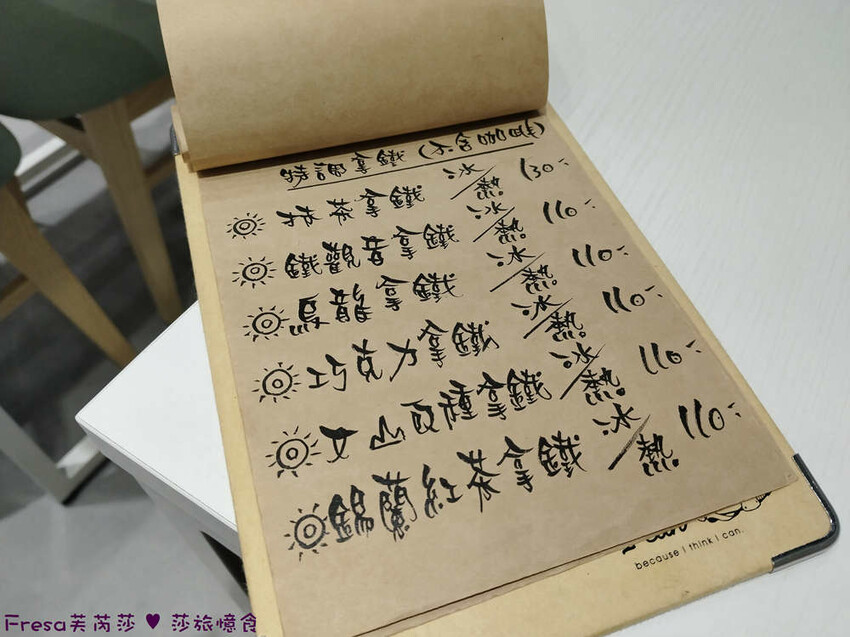 特調拿鐵(不含咖啡)
抹茶拿鐵 冰/熱 130
鐵觀音拿鐵 冰/熱 110
烏龍拿鐵 冰/熱 110
巧克力拿鐵 冰/熱 110
文山包種拿鐵 冰/熱 110
錫蘭紅茶拿鐵 冰/熱 110
because I think I can.
Fresa芙芮莎 ♥ 莎旅憶食